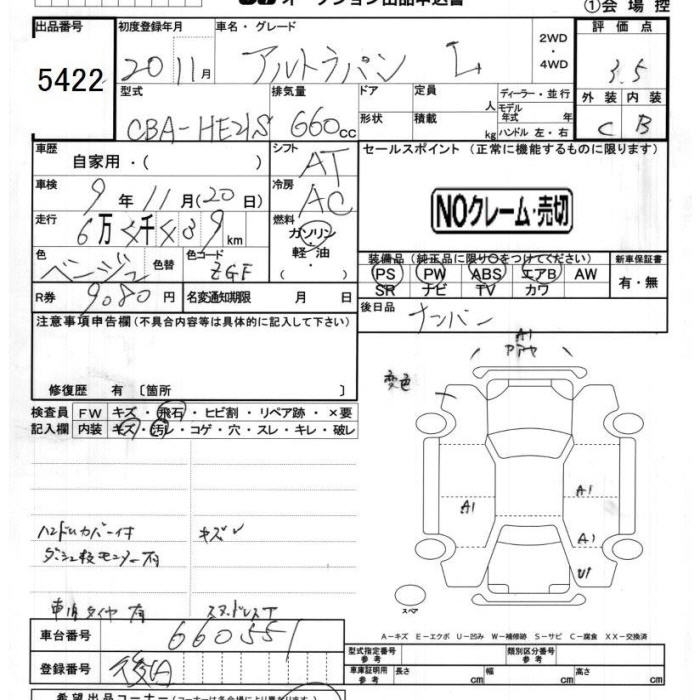 オークション出品申込書
①会場控
出品番号 初度登録年月 車名・グレード 評価点
5422 20 11月 アルトラパン L 2WD・4WD 3.5
型式 排気量 ドア 定員 人 ディーラー・並行 外装 内装
CBA-HE21S 660cc 形状 積載 kg モデル年式 年 ハンドル 左・右 C B
車歴 自家用・( ) シフト AT セールスポイント (正常に機能するものに限ります)
車検 9年11月(20日) 冷房 AC NOクレーム・売切
走行 6万 千 9km 燃料 ガソリン・軽油 ( )
装備品 (純正品に限り○をつけてください) 新車保証書
色 ベージュ 色替 色コード ZGF PS PW ABS エアB AW 有・無
SR ナビ TV カワ
R券 9080円 名変通知期限 月 日 後日品 ナンバン
注意事項申告欄(不具合内容等は具体的に記入して下さい)
A1
変色
修復歴 有 [箇所 ]
検査員 FW キズ・飛石・ヒビ割・リペア跡・×要
記入欄 内装 キズ・汚レ・コゲ・穴・スレ・キレ・破レ
A1 A1
ハンドルカバー付 キズ A1
有 U1
スペア
有 スタッドレス
A-キズ E-エクボ U-凹み W-補修跡 S-サビ C-腐食 XX-交換済
車台番号 660551 型式指定番号 参考 類別区分番号 参考
登録番号 後日 車庫証明用 参考 長さ cm 幅 cm 高さ cm
希望出品コーナー